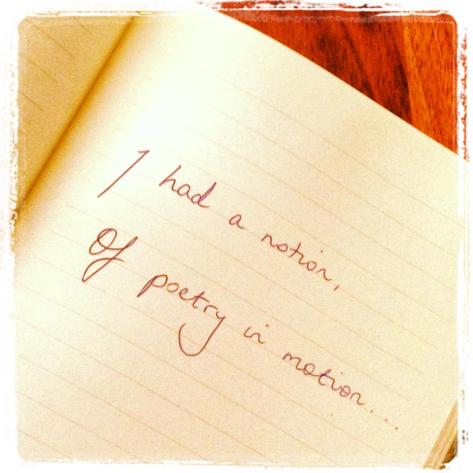 I had a notion,
Of poetry in motion...